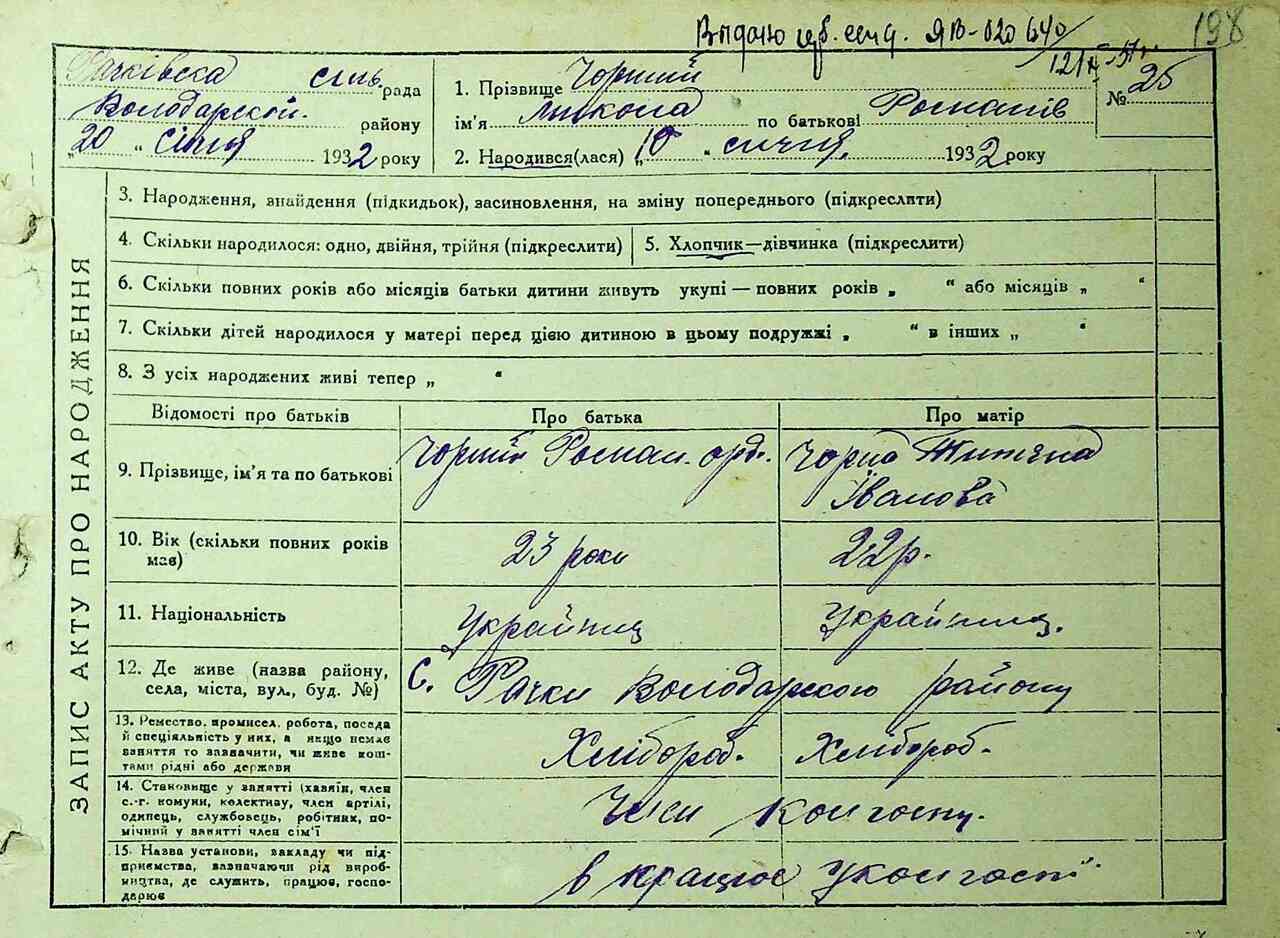 Видано ЯВ-020640
198
Рачківска сіль. рада
Володарской району
„20“ січня 1932 року
1. Прізвище Чорний
ім'я Микола по батькові Роман
2. Народився(лася) „10“ сичня 1932 року
№ 25
ЗАПИС АКТУ ПРО НАРОДЖЕННЯ
3. Народження, знайдення (підкидьок), засиновлення, на зміну попереднього (підкреслити)
4. Скільки народилося: одно, двійня, трійня (підкреслити) 5. Хлопчик—дівчинка (підкреслити)
6. Скільки повних років або місяців батьки дитини живуть укупі — повних років „ “ або місяців „ “
7. Скільки дітей народилося у матері перед цією дитиною в цьому подружжі „ “ в інших „ “
8. З усіх народжених живі тепер „ “
Відомості про батьків Про батька Про матір
9. Прізвище, ім'я та по батькові Чорний Роман Чорна Титяна
Іванова
10. Вік (скільки повних років 23 роки 22р.
мав)
11. Національність Украйниц Украйниц.
12. Де живе (назва району, С. Рачки Володарскою району
села, міста, вул., буд. №)
13. Ремество, промисел, робота, посада
й спеціяльність у них, а якщо немає Хлібороб. Хлібороб.
заняття то зазначити, чи живе кош-
тами рідні або держави
14. Становище у занятті (хазяїн, член
с.-г. комуни, колективу, член артілі, Член колгоспу.
одипець, службовець, робітник, по-
мічний у занятті член сім'ї
15. Назва установи, закладу чи під-
приємства, зазначаючи рід вироб- в працює у колгоспі
ництва, де служить, працює, госпо-
дарює